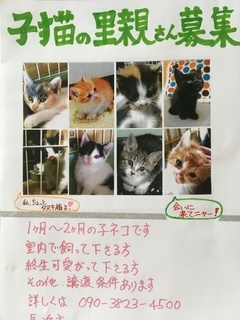 子猫の里親さん募集
私、ちょっと
タスキ脂よ
会いに
来てニャー!
1ヶ月〜2ヶ月の子ネコです
室内で飼って下さる方
終生可愛がって下さる方
その他、譲渡条件あります
詳しくは 090-3823-4500
長浜市